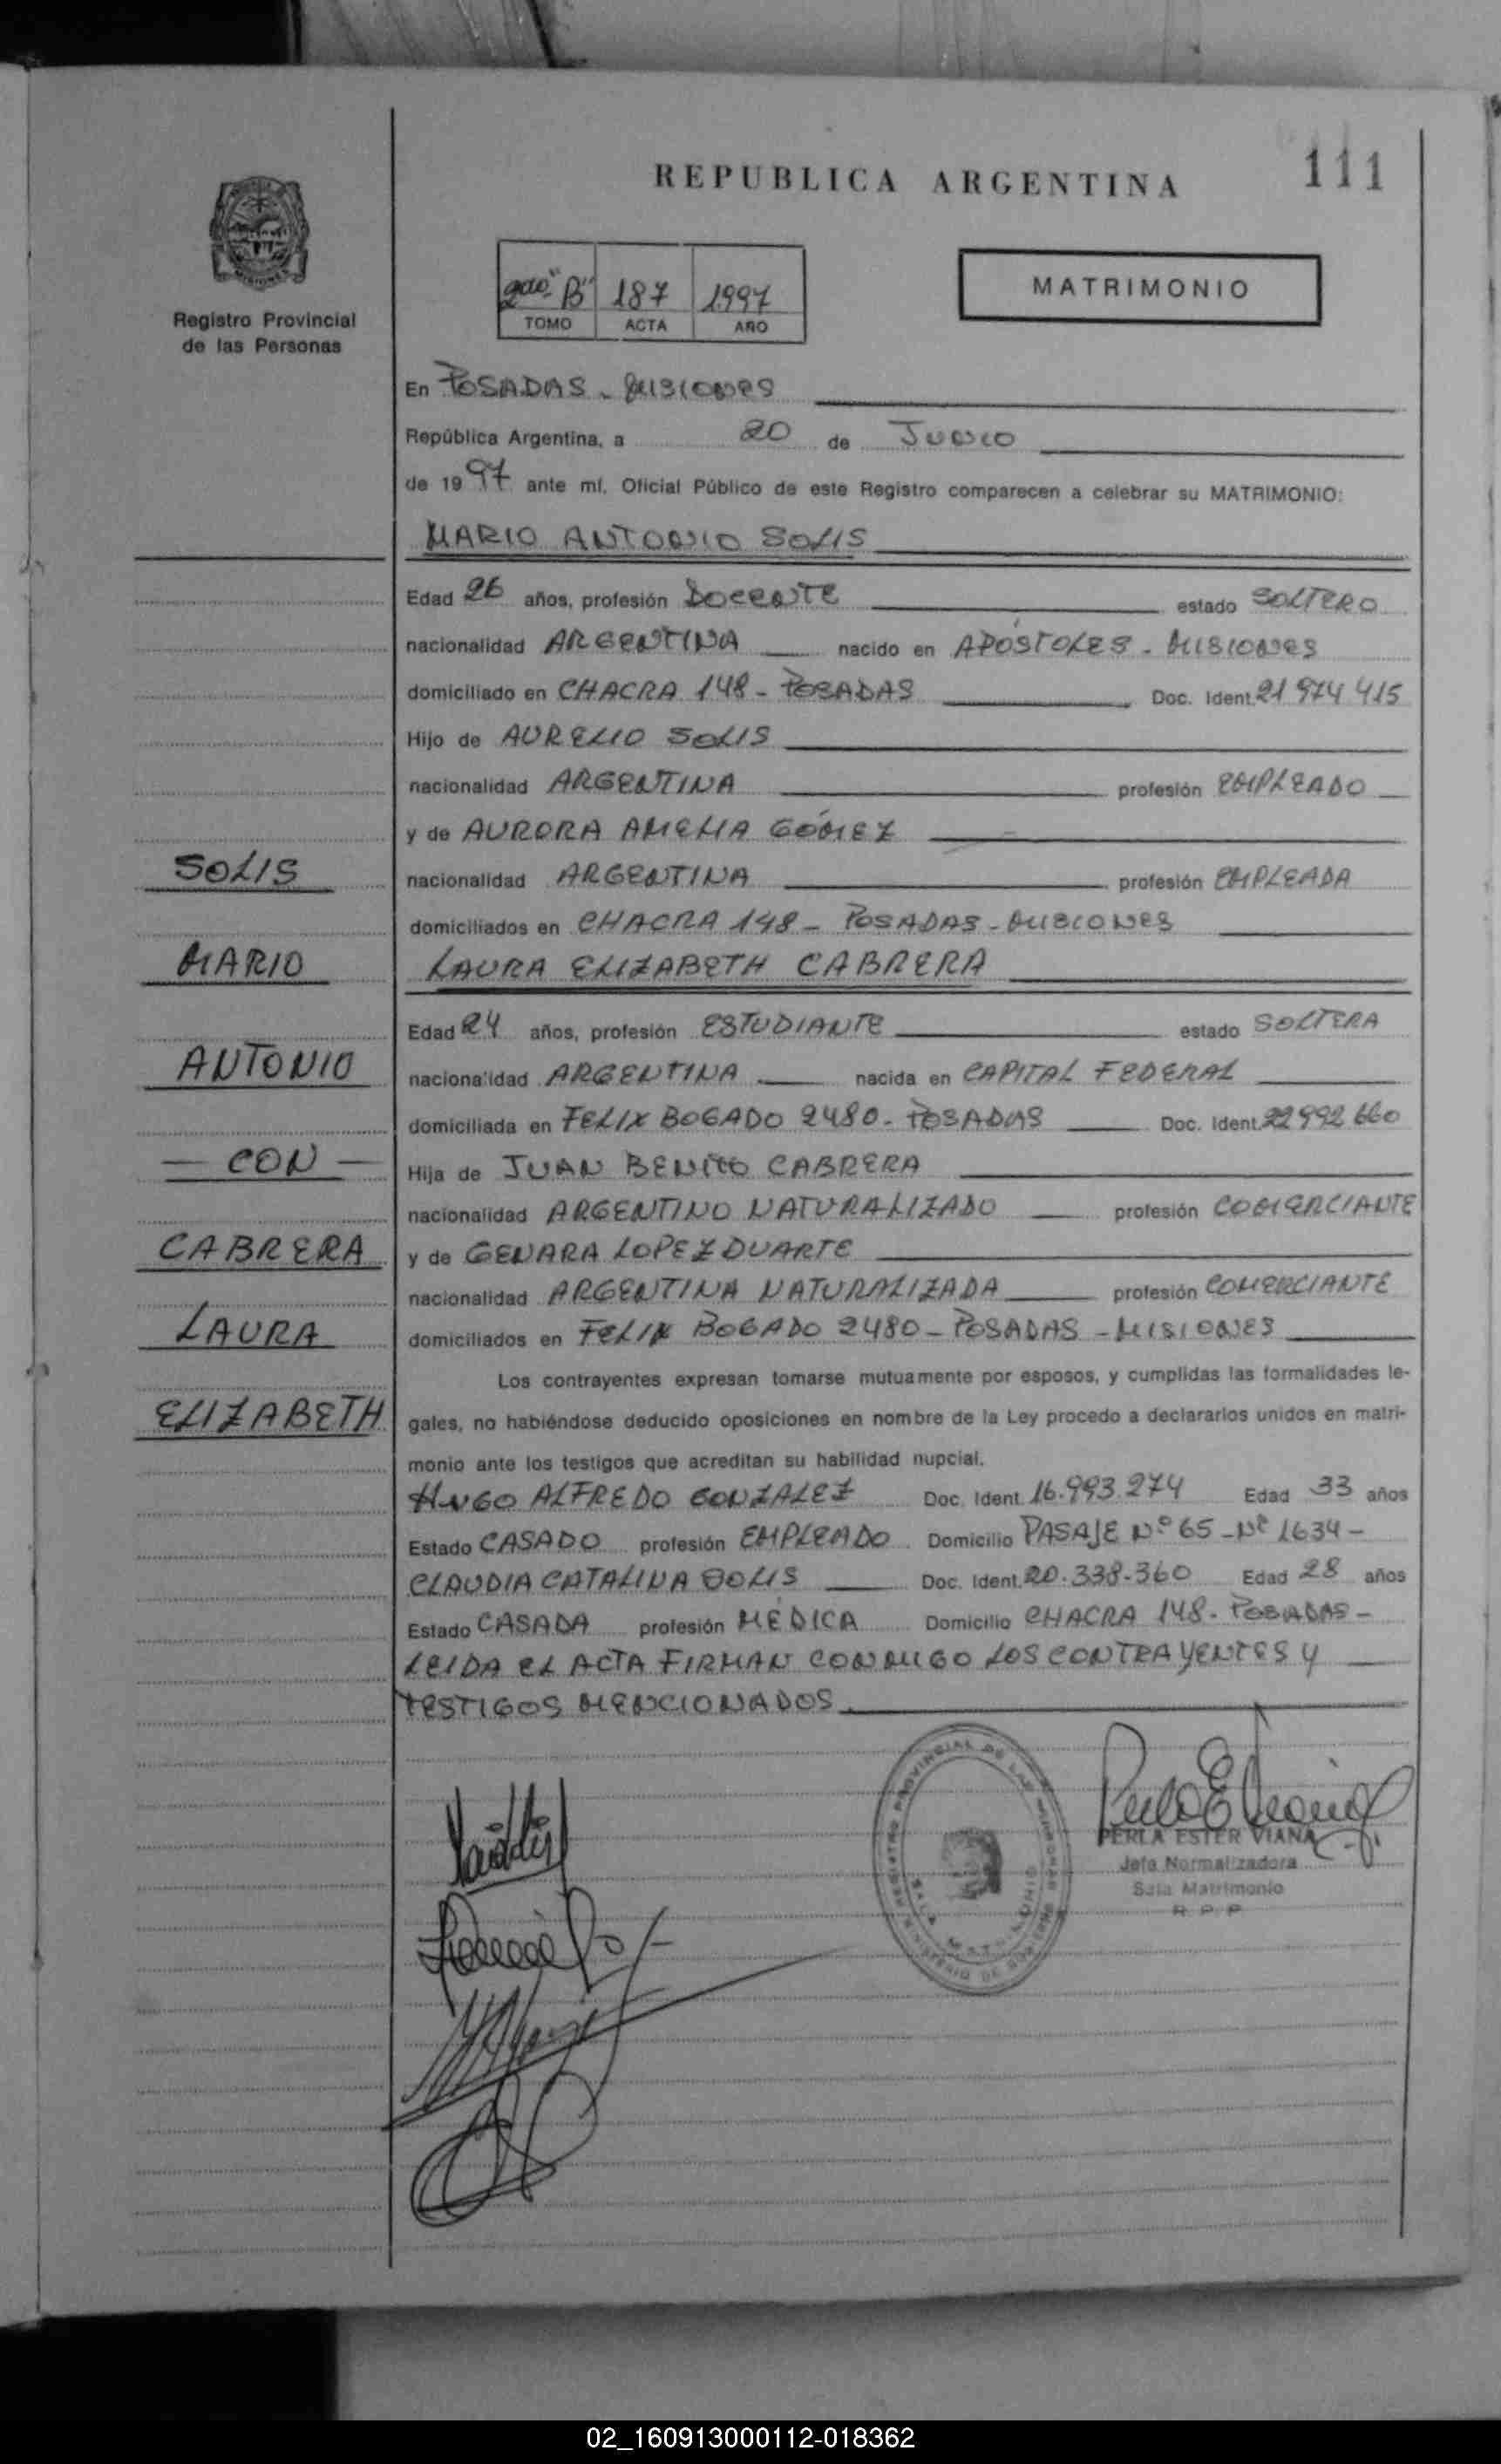 REPUBLICA ARGENTINA
111
Registro Provincial
de las Personas
2do "B" 187 1997
TOMO ACTA AÑO
MATRIMONIO
En POSADAS - MISIONES
República Argentina, a 20 de JUNIO
de 1997 ante mí, Oficial Público de este Registro comparecen a celebrar su MATRIMONIO:
MARIO ANTONIO SOLIS
Edad 26 años, profesión DOCENTE estado SOLTERO
nacionalidad ARGENTINA nacido en APÓSTOLES - MISIONES
domiciliado en CHACRA 148 - POSADAS Doc. Ident. 21 974 415
Hijo de AURELIO SOLIS
nacionalidad ARGENTINA profesión EMPLEADO
y de AURORA AMELIA GÓMEZ
nacionalidad ARGENTINA profesión EMPLEADA
domiciliados en CHACRA 148 - POSADAS - MISIONES
LAURA ELIZABETH CABRERA
Edad 24 años, profesión ESTUDIANTE estado SOLTERA
nacionalidad ARGENTINA nacida en CAPITAL FEDERAL
domiciliada en FELIX BOGADO 2480 - POSADAS Doc. Ident. 22 992 660
Hija de JUAN BENITO CABRERA
nacionalidad ARGENTINO NATURALIZADO profesión COMERCIANTE
y de GENARA LOPEZ DUARTE
nacionalidad ARGENTINA NATURALIZADA profesión COMERCIANTE
domiciliados en FELIX BOGADO 2480 - POSADAS - MISIONES
SOLIS
MARIO
ANTONIO
- CON -
CABRERA
LAURA
ELIZABETH
Los contrayentes expresan tomarse mutuamente por esposos, y cumplidas las formalidades le-
gales, no habiéndose deducido oposiciones en nombre de la Ley procedo a declararlos unidos en matri-
monio ante los testigos que acreditan su habilidad nupcial.
HUGO ALFREDO GONZALEZ Doc. Ident. 16.993.274 Edad 33 años
Estado CASADO profesión EMPLEADO Domicilio PASAJE Nº 65 - Nº 1634 -
CLAUDIA CATALINA SOLIS Doc. Ident. 20.338.360 Edad 28 años
Estado CASADA profesión MÉDICA Domicilio CHACRA 148 - POSADAS -
LEIDA EL ACTA FIRMAN CONMIGO LOS CONTRAYENTES Y
TESTIGOS MENCIONADOS.
REGISTRO PROVINCIAL DE LAS PERSONAS
SALA MATRIMONIO
MINISTERIO DE GOBIERNO
PERLA ESTER VIANA
Jefa Normalizadora
Sala Matrimonio
R P P
02_160913000112-018362